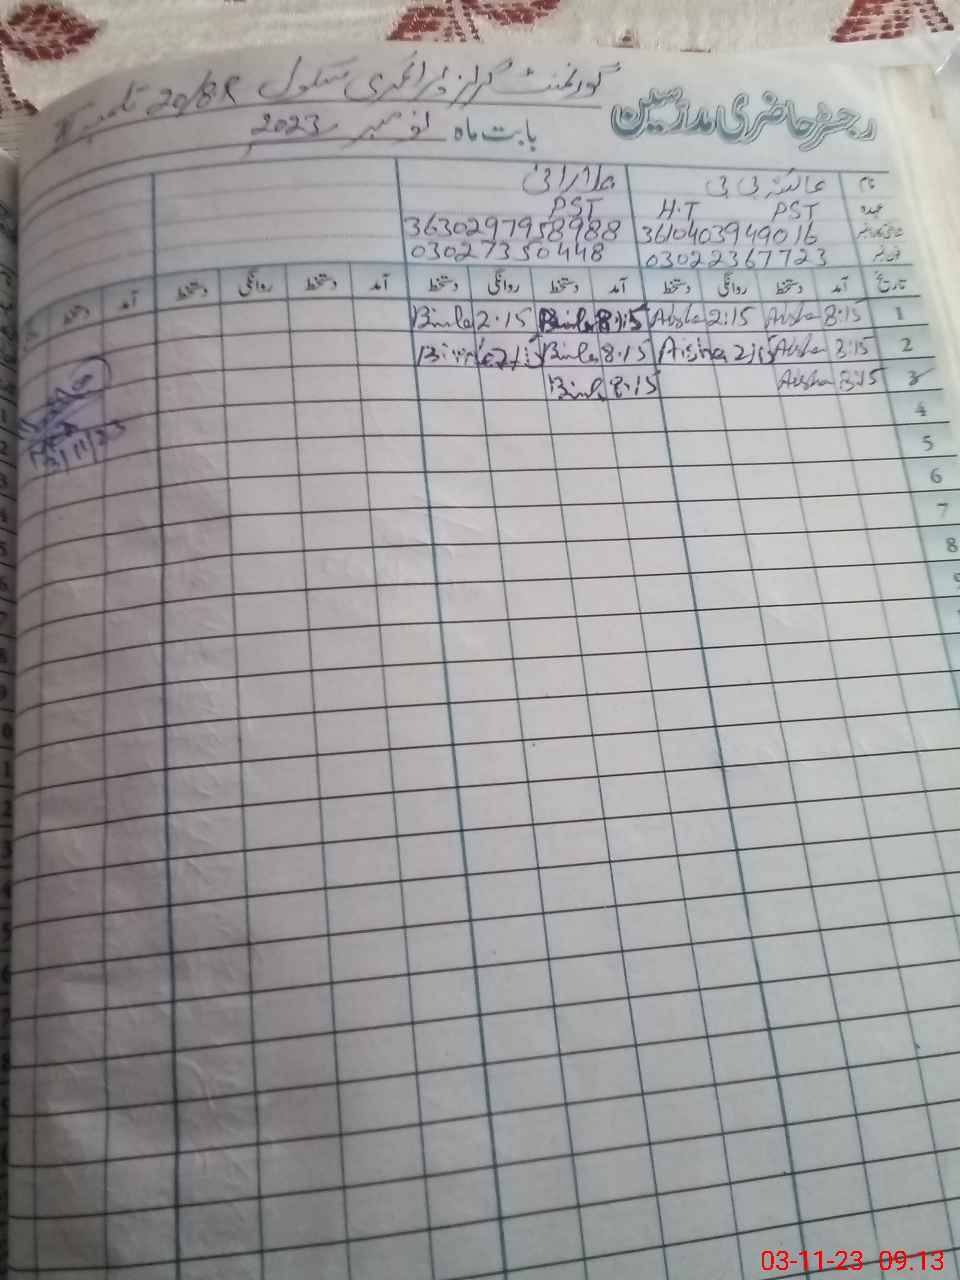 گورنمنٹ گرلز پرائمری سکول 20/8R
رجسٹر حاضری مدرسین
بابت ماہ نومبر 2023
نام عائشہ بی بی
عہدہ PST H.T PST
3610403949016 3630297958988
03022367723 03027350448
تاریخ آمد دستخط روانگی دستخط آمد دستخط روانگی دستخط آمد دستخط روانگی دستخط آمد دستخط
1 8:15 Aisha 2:15 Aisha 8:15 2:15
2 8:15 Aisha 2:15 Aisha 8:15 2:15
3 8:15 Aisha 8:15
4
5
6
7
8
03-11-23 09:13